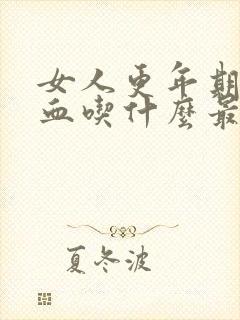 女人更年期
血喫什麼最
夏冬波